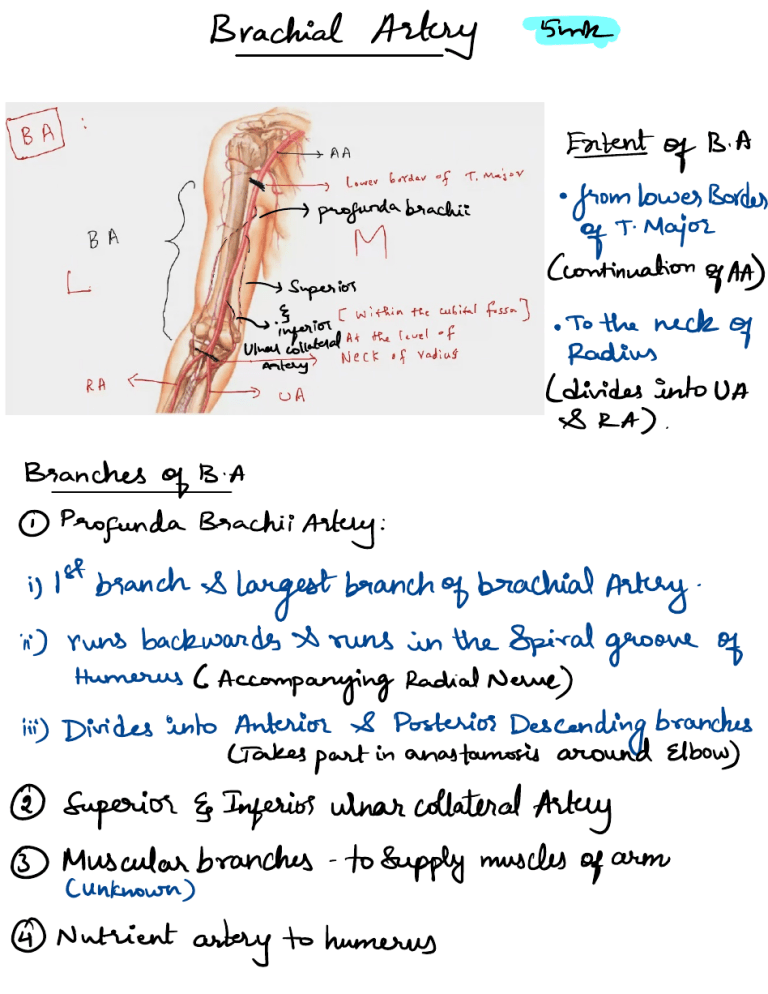 Brachial Artery 5mk
BA :
AA
Lower border of T. Major
profunda brachii
BA
M
L
Superior
&
inferior
Ulnar collateral
Artery
[within the cubital fossa]
At the level of
Neck of radius
RA
UA
Extent of B.A
• from lower Border
of T. Major
(continuation of AA)
• To the neck of
Radius
(divides into UA
& RA).
Branches of B.A
① Profunda Brachii Artery:
i) 1st branch & largest branch of brachial Artery.
ii) runs backwards & runs in the Spiral groove of
Humerus (Accompanying Radial Nerve)
iii) Divides into Anterior & Posterior Descending branches
(Takes part in anastamosis around Elbow)
② Superior & Inferior ulnar collateral Artery
③ Muscular branches - to Supply muscles of arm
(unknown)
④ Nutrient artery to humerus